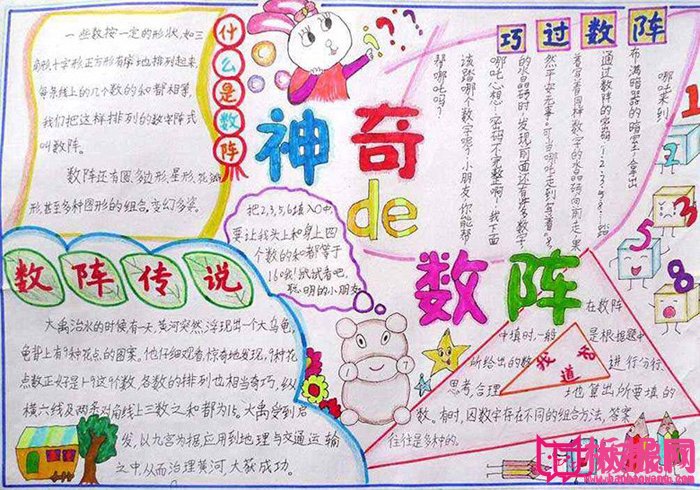 什么是数阵
一些数按一定的形状,如三
角形十字形正方形有序地排列起来,
每条线上的几个数的和都相等,
我们把这样排列的数字阵式
叫数阵。
数阵还有圆、多边形、星形、花瓣
形,甚至多种图形的组合,变幻多姿。
神奇
de
数阵
巧过数阵
哪吒来到
布满暗器的暗室,拿出
通过数阵的密码:1-2-3-5-8-……踏
着写着同样数字的水晶砖向前走,果
然平安无事。可当哪吒走到写着8
的水晶砖时,发现前面还有许多数字
哪吒心想:“密码不完整啊!我下面
该踏哪个数字呢?”小朋友,你能帮
帮哪吒吗?
1
2
3
5
8
把2,3,5,6填入〇中,
要让我头上和身上四
个数的和都等于
16哦!试试看吧,
聪明的小朋友
数阵传说
大禹治水的时候有一天,黄河突然浮现出一个大乌龟,
龟背上有9种花点的图案。他仔细观看,惊奇地发现,9种花
点数正好是1-9这9个数,各数的排列也相当奇巧,纵
横六线及两条对角线上三数之和都为15。大禹受到启
发,以九宫为据应用到地理与交通运输
之中,从而治理黄河大获成功。
我
知
道
在数阵
中填时,一般是根据题中
所给出的数进行分析、
思考,合理地算出所要填的
数。有时,因数字存在不同的组合方法,答案
往往是多种的。
板报网
www.banbaowang.com